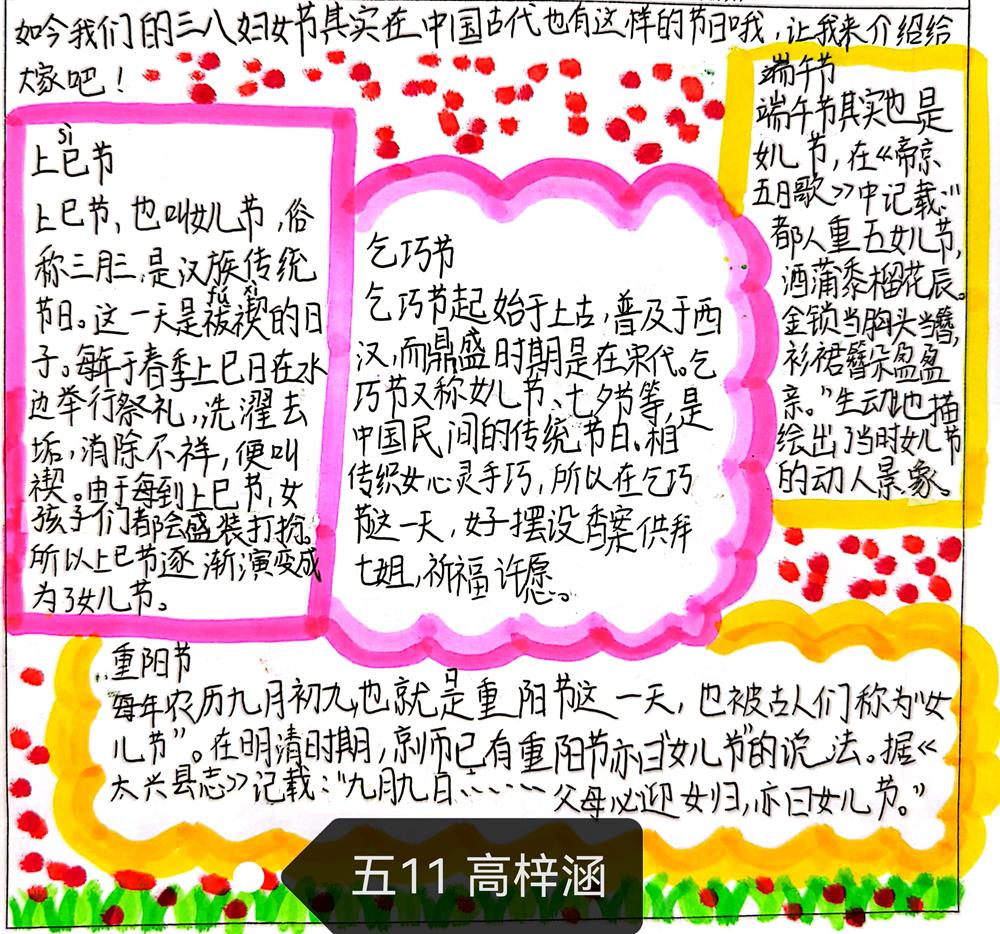 如今我们的三八妇女节其实在中国古代也有这样的节日哦,让我来介绍给
大家吧!
sì
上巳节
上巳节,也叫女儿节,俗
称三月三,是汉族传统
fú xì
节日。这一天是祓禊的日
子。每年于春季上巳日在水
边举行祭礼,洗濯去
垢,消除不祥,便叫
禊。由于每到上巳节,女
孩子们都会盛装打扮。
所以上巳节逐渐演变成
为了女儿节。
乞巧节
乞巧节起始于上古,普及于西
汉,而鼎盛时期是在宋代。乞
巧节又称女儿节、七夕节等,是
中国民间的传统节日。相
传织女心灵手巧,所以在乞巧
节这一天,女子摆设香案供拜
七姐,祈福许愿。
端午节
端午节其实也是
女儿节,在《帝京
五日歌》中记载:“
都人重五女儿节,
酒蒲黍榴花辰。
金锁当胸头当簪,
衫裙簪朵盈盈
亲。”生动地描
绘出了当时女儿节
的动人景象。
重阳节
每年农历九月初九,也就是重阳节这一天,也被古人们称为“女
儿节”。在明清时期,京师已有重阳节亦曰“女儿节”的说法。据《
太兴县志》记载:“九月九日………父母必迎女归,亦曰女儿节。”
五11 高梓涵